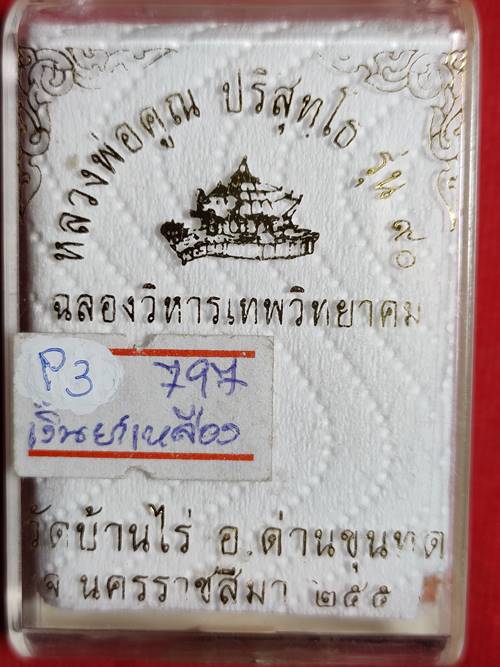 หลวงพ่อคูณ ปริสุทฺโธ รุ่น ๙๐
ฉลองวิหารเทพวิทยาคม
P3 797
เงินยาเหลือง
วัดบ้านไร่ อ.ด่านขุนทด
จ.นครราชสีมา ๒๕๕